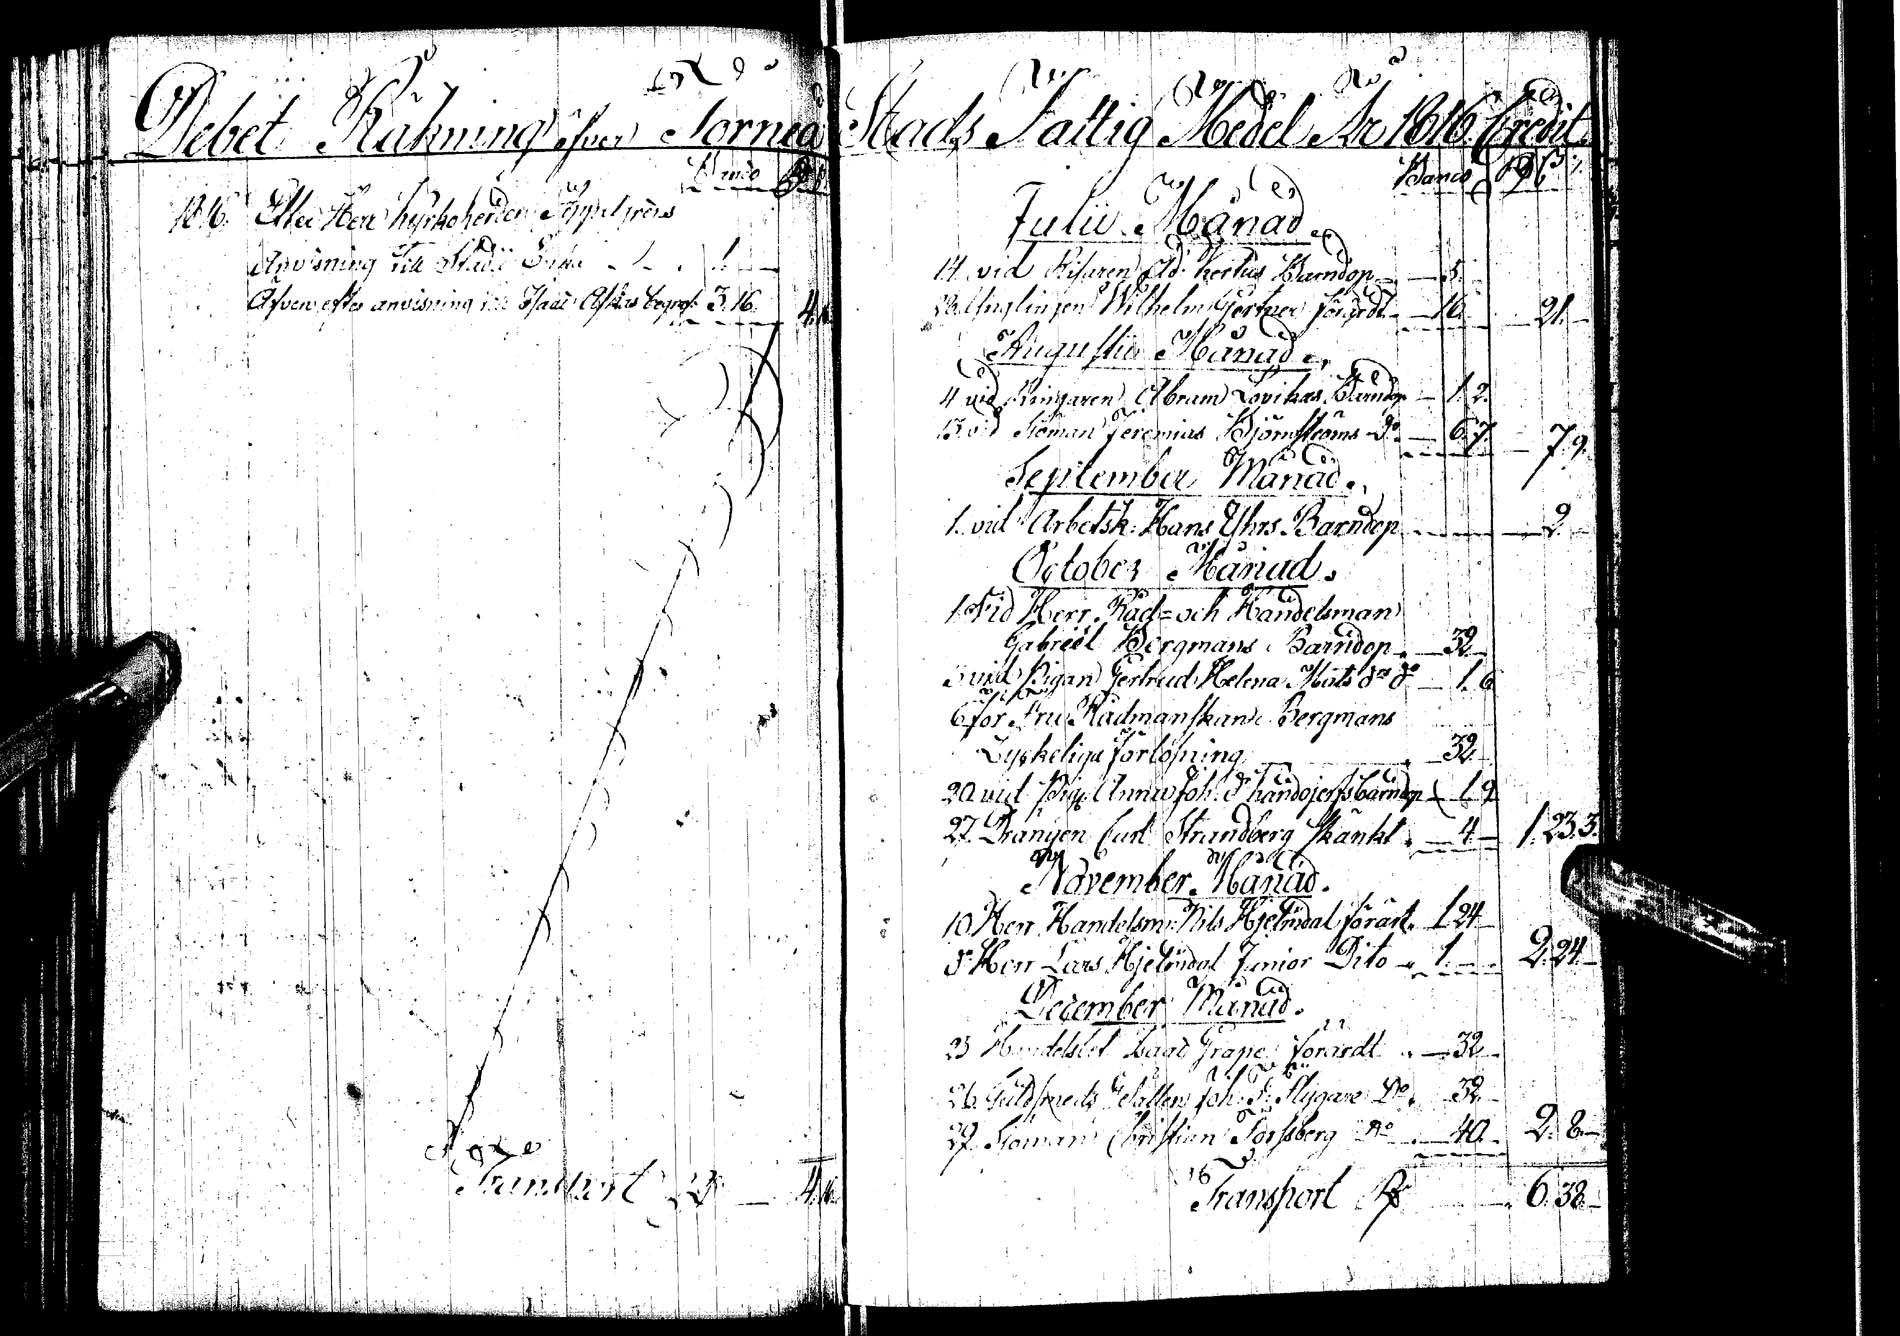 Debet Räkning öfver Torneå
Banco
1816. Efter Herr Kyrkoherden
Anvisning till 1.
Äfven efter anvisning till begrof: 3.16. 4.16
Transport Rd 4.16.
Stads Fattig Medel År 1816. Credit.
Banco
Julii Månad.
14 vid Barndop 5.
Ynglingen Wilhelm Gertner förärdt 16. 21.
Augustii Månad.
4 vid Ringaren Abram Lovikas Barndop 1.2.
vid Sjöman Jeremias Björnströms do 6.7. 7.9.
September Månad.
1. vid Arbetsk: Hans Barndop 2.
October Månad.
1. Vid Herr Råd= och Handelsman
Gabriel Bergmans Barndop 32
vid Pigan Gertrud Helena Mats dr do 1.6
6 för Fru Rådmanskan Bergmans
Lyckeliga förlösning 32.
20 vid Pig: Anna Joh. barndop 1.9
27. Drängen Carl Strandberg skänkt. 4. 1.23.3.
November Månad.
10 Herr Handelsm: Nils Hjelmdal förärt. 1.24
do Herr Lars Hjelmdal Junior Dito 1. 2.24.
December Månad.
23 Isaac Grape förärdt 32
26. Guldsmeds Gesällen Joh: Flygare Do. 32.
29. Sjöman Christian Forssberg Do 40. 2.8.
Transport Rd 6.38.